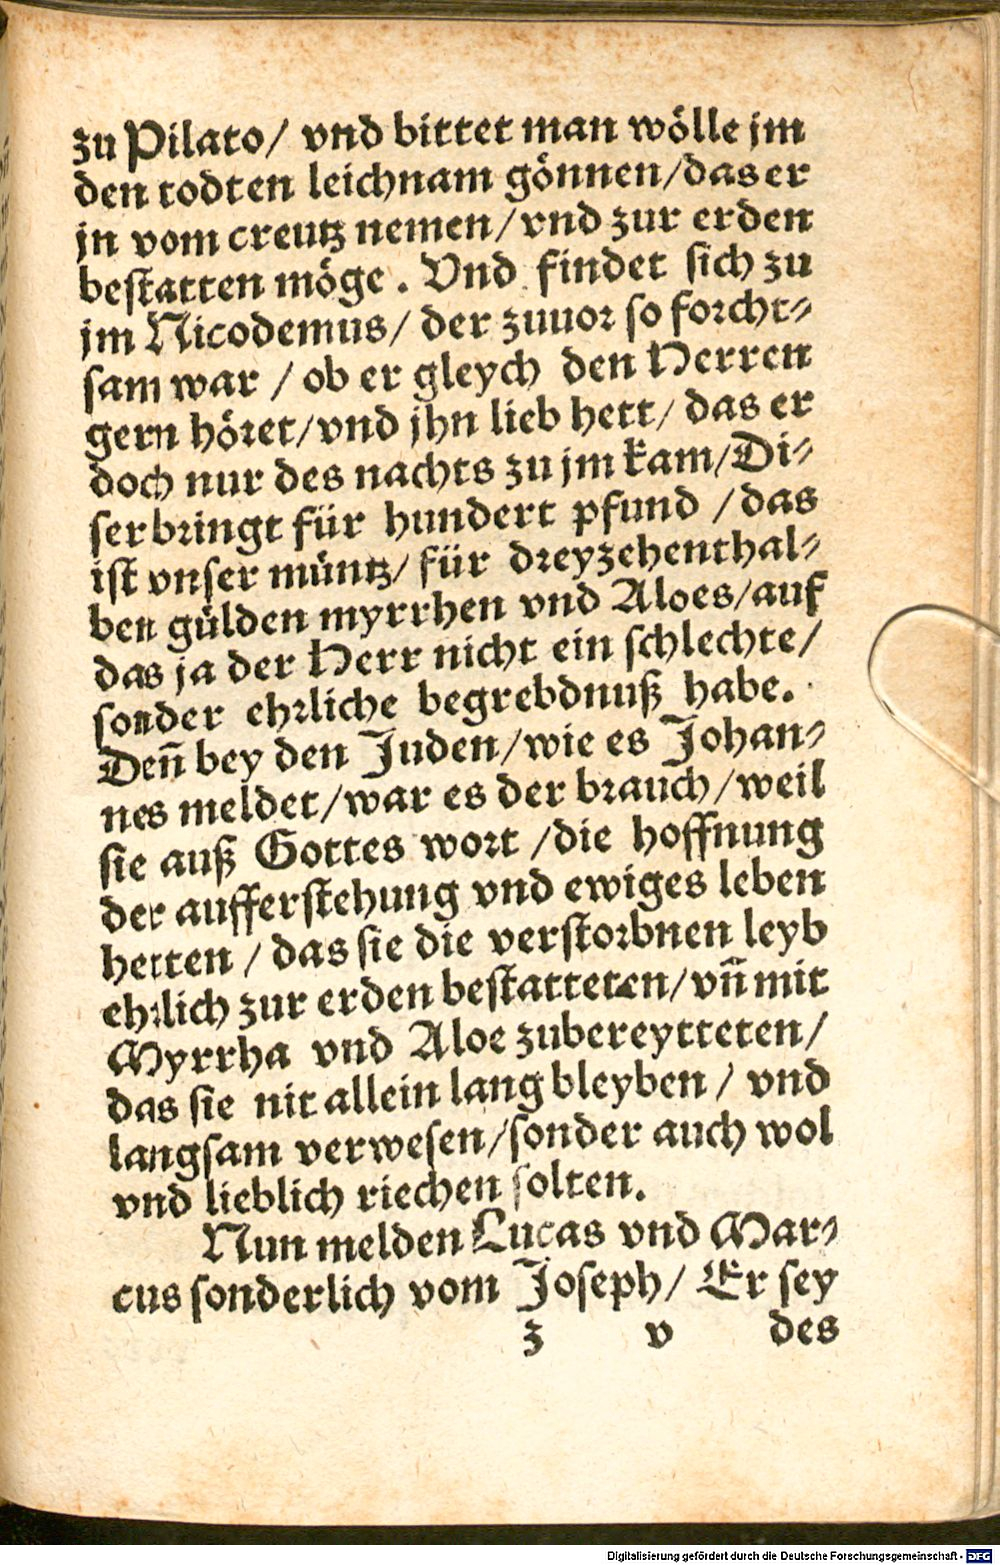 zu Pilato/ vnd bittet man wölle jm
den todten leichnam gönnen/das er
jn vom creutz nemen/vnd zur erden
bestatten möge. Vnd findet sich zu
jm Nicodemus/ der zuuor so forcht⸗
sam war / ob er gleych den Herren
gern höret/vnd jhn lieb hett/ das er
doch nur des nachts zu jm kam/Di⸗
ser bringt für hundert pfund /das
ist vnser müntz/ für dreyzehenthal⸗
ben gülden myrrhen vnd Aloes/auf
das ja der Herr nicht ein schlechte/
sonder ehrliche begrebdnuß habe.
Deñ bey den Juden/wie es Johan⸗
nes meldet/war es der brauch/weil
sie auß Gottes wort /die hoffnung
der aufferstehung vnd ewiges leben
hetten / das sie die verstorbnen leyb
ehrlich zur erden bestatteten/vñ mit
Myrrha vnd Aloe zubereytteten/
das sie nit allein lang bleyben / vnd
langsam verwesen/sonder auch wol
vnd lieblich riechen solten.
Nun melden Lucas vnd Mar⸗
cus sonderlich vom Joseph/ Er sey
z v des
Digitalisierung gefördert durch die Deutsche Forschungsgemeinschaft - DFG